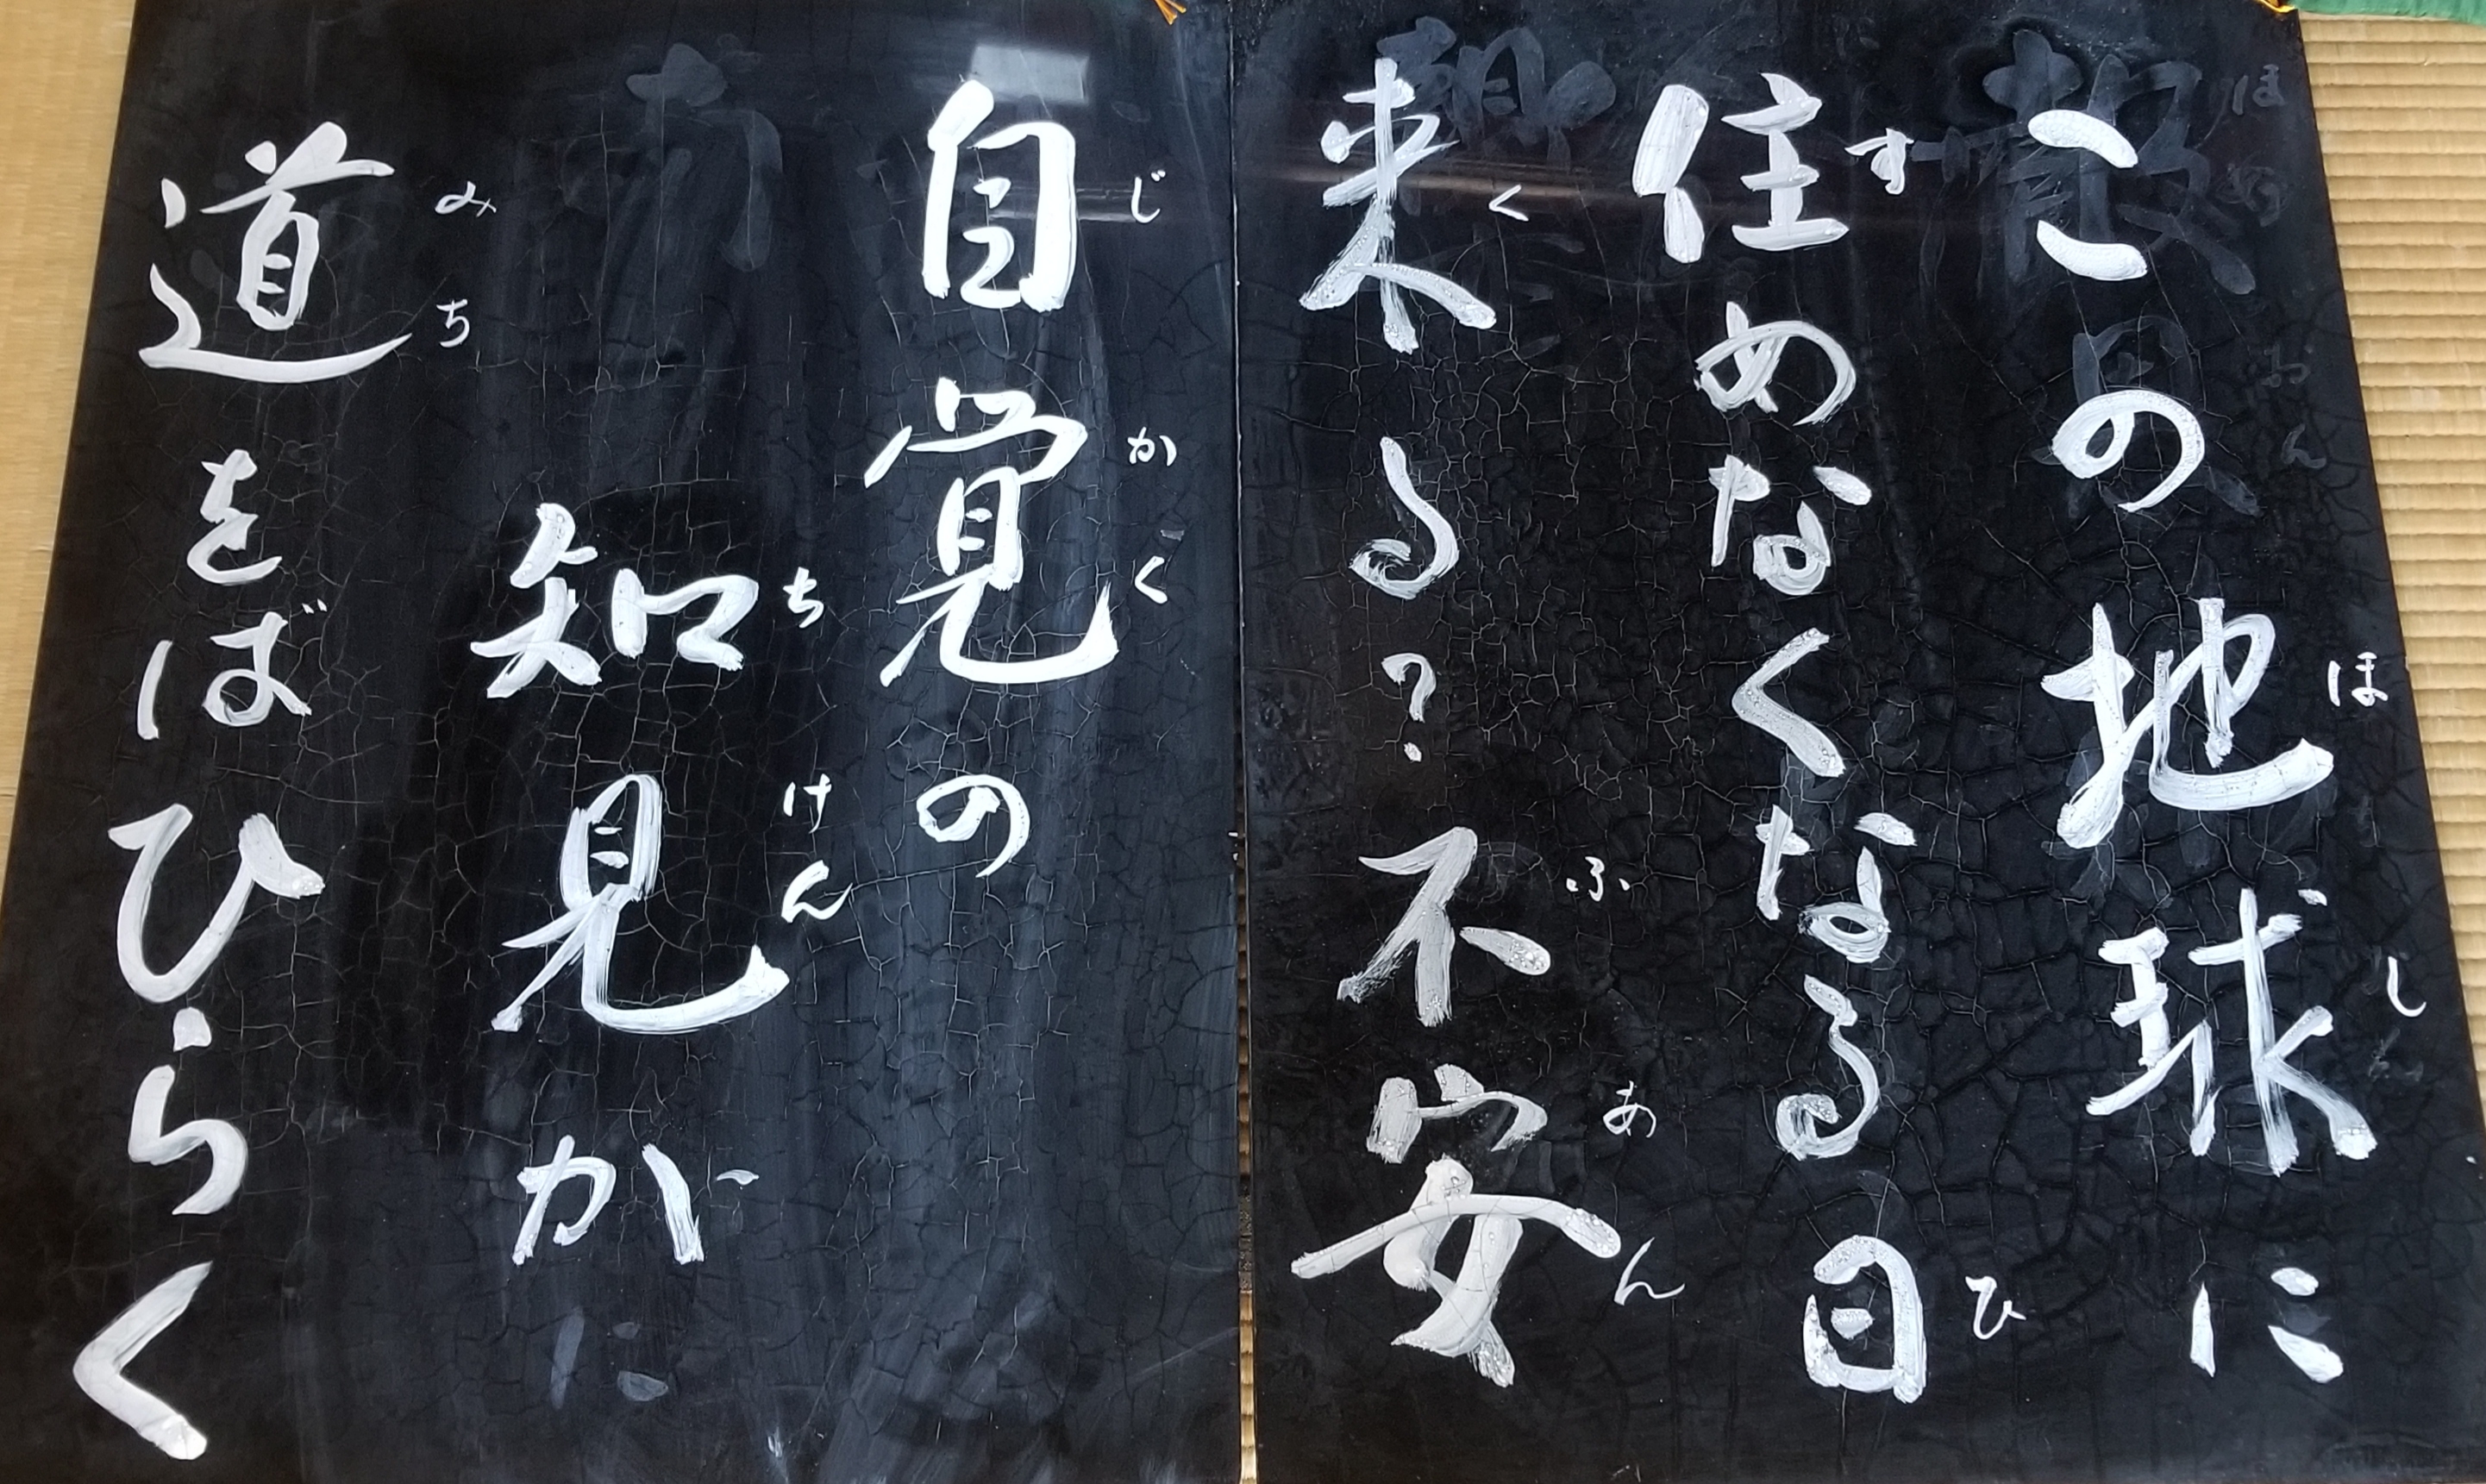 この地球に
ほし
住めなくなる日
す ひ
来る?不安
く ふあん
自覚の
じかく
知見が
ちけん
道をばひらく
みち